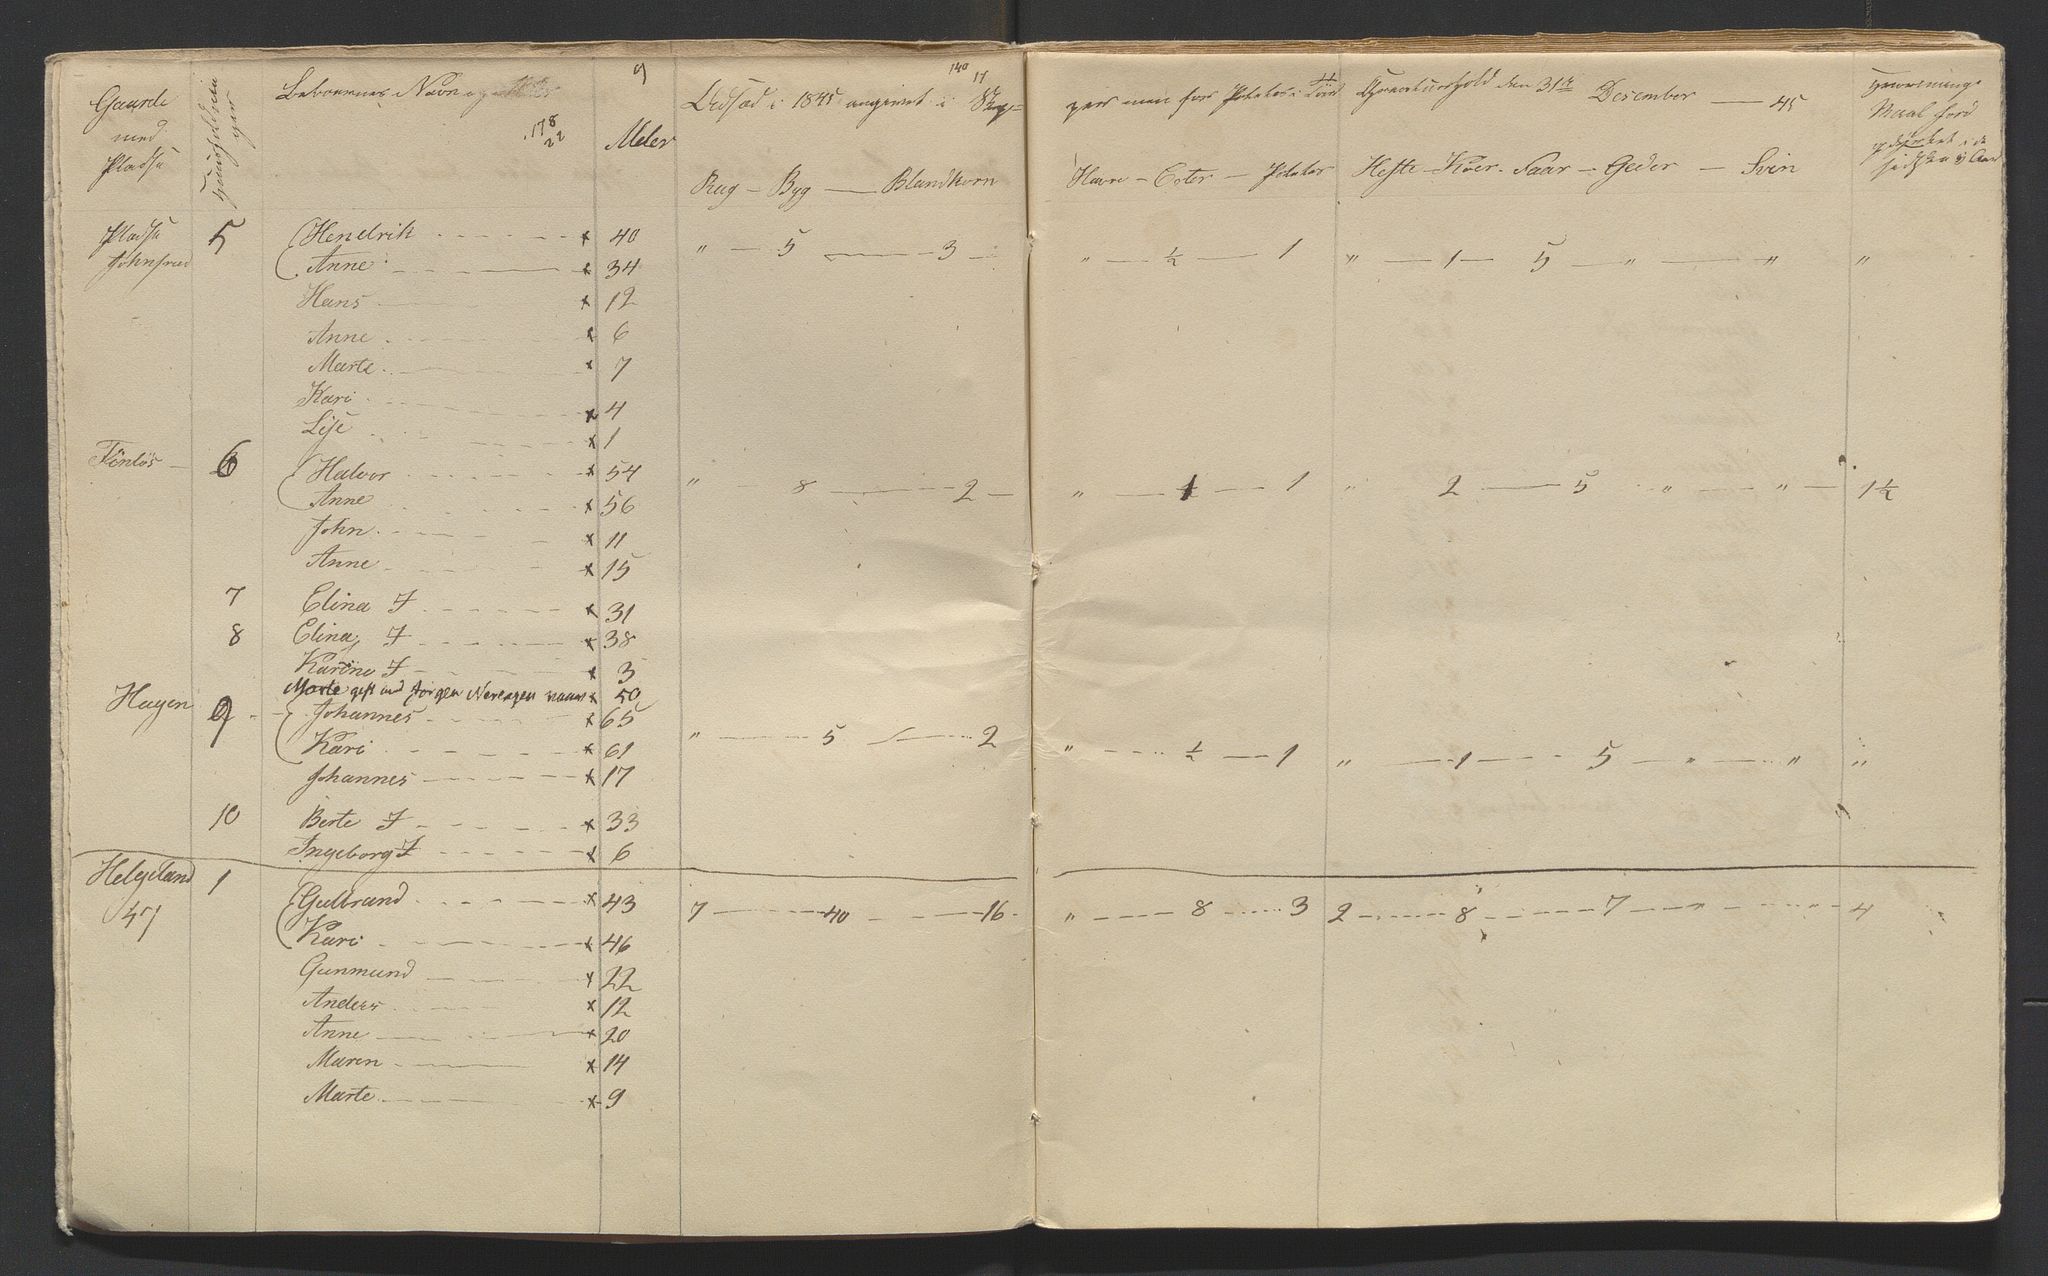 9
140
11
Gaarde
med
Pladse
Huusholdninger
Beboernes Navne
178
22
Alder
Udsæd i 1845 angivet i Skep-
per men for Poteter i Tønd
Creaturhold den 31te Desember — 45
Maal Jord
opdÿrket i de
Rug — Byg — Blandkorn
Havre — Erter — Poteter
Heste — Kiøer — Faar — Geder — Svin
Pladse 5 Hendrik x 40 " — 5 — 3 — " — ½ — 1 " — 1 — 5 — " — " "
Anne x 34
Hans x 12
Anne x 6
Marte x 7
Kari x 4
Lise x 1
Finløs — 6 Halvor x 54 " — 8 — 2 — " — 1 — 1 " 2 — 5 " — " — 1½
Anne x 56
John x 11
Anne x 15
7 Elina F x 31
8 Elina F x 38
Karine F x 3
Marte gift med Jørgen Nereagen x 50
Hagen 9 Johannes x 65 " — 5 — 2 " — ½ — 1 " — 1 — 5 — " — " "
Kari x 61
Johannes x 17
10 Berte F x 33
Ingeborg F x 6
Helgeland 1 Gulbrand x 43 7 — 40 — 16 " — 8 — 3 2 — 8 — 7 — " — " — 4
47 Kari x 46
Gunmund x 22
Anders x 12
Anne x 20
Maren x 14
Marte x 9